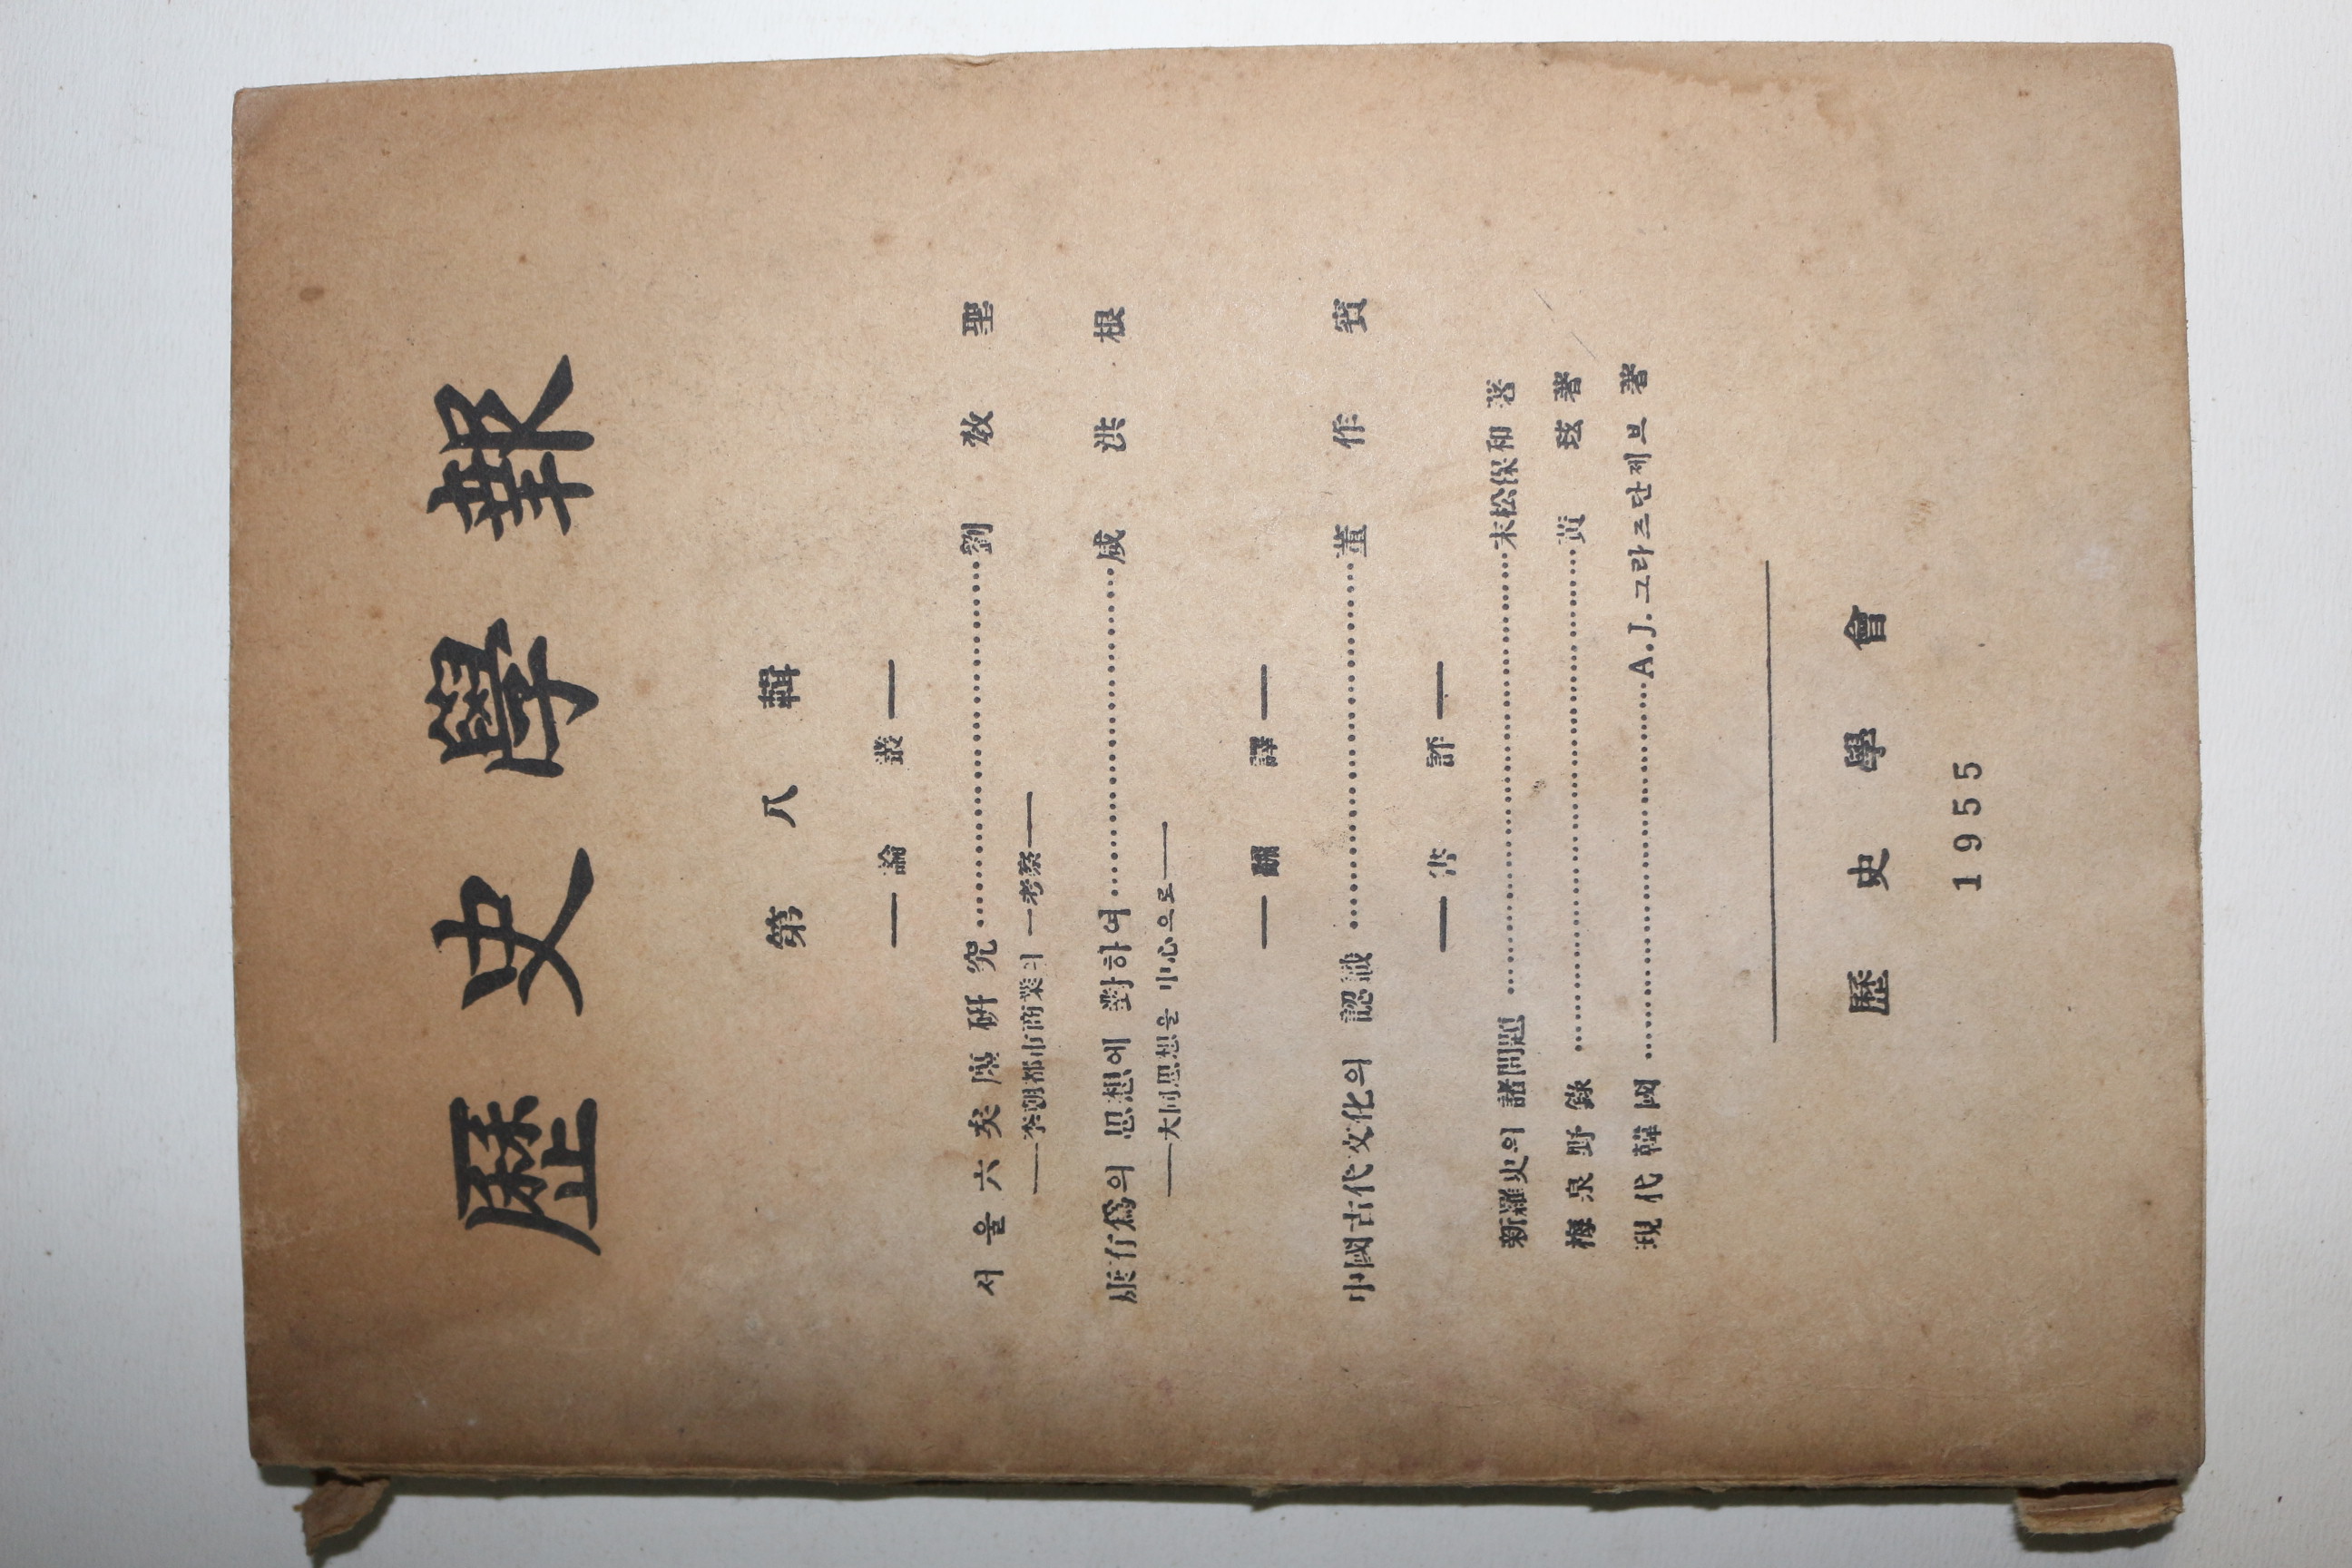 歷史學報
第八輯
— 論叢 —
서울六矣廛硏究……………………劉敎聖
——李朝都市商業의 一考察——
康有爲의 思想에 對하여……………………咸洪根
——大同思想을 中心으로——
— 飜譯 —
中國古代文化의 認識……………………董作賓
— 書評 —
新羅史의 諸問題……………………末松保和 著
梅泉野錄……………………黃玹 著
現代韓國……………………A.J.그라즈단제브 著
歷史學會
1955